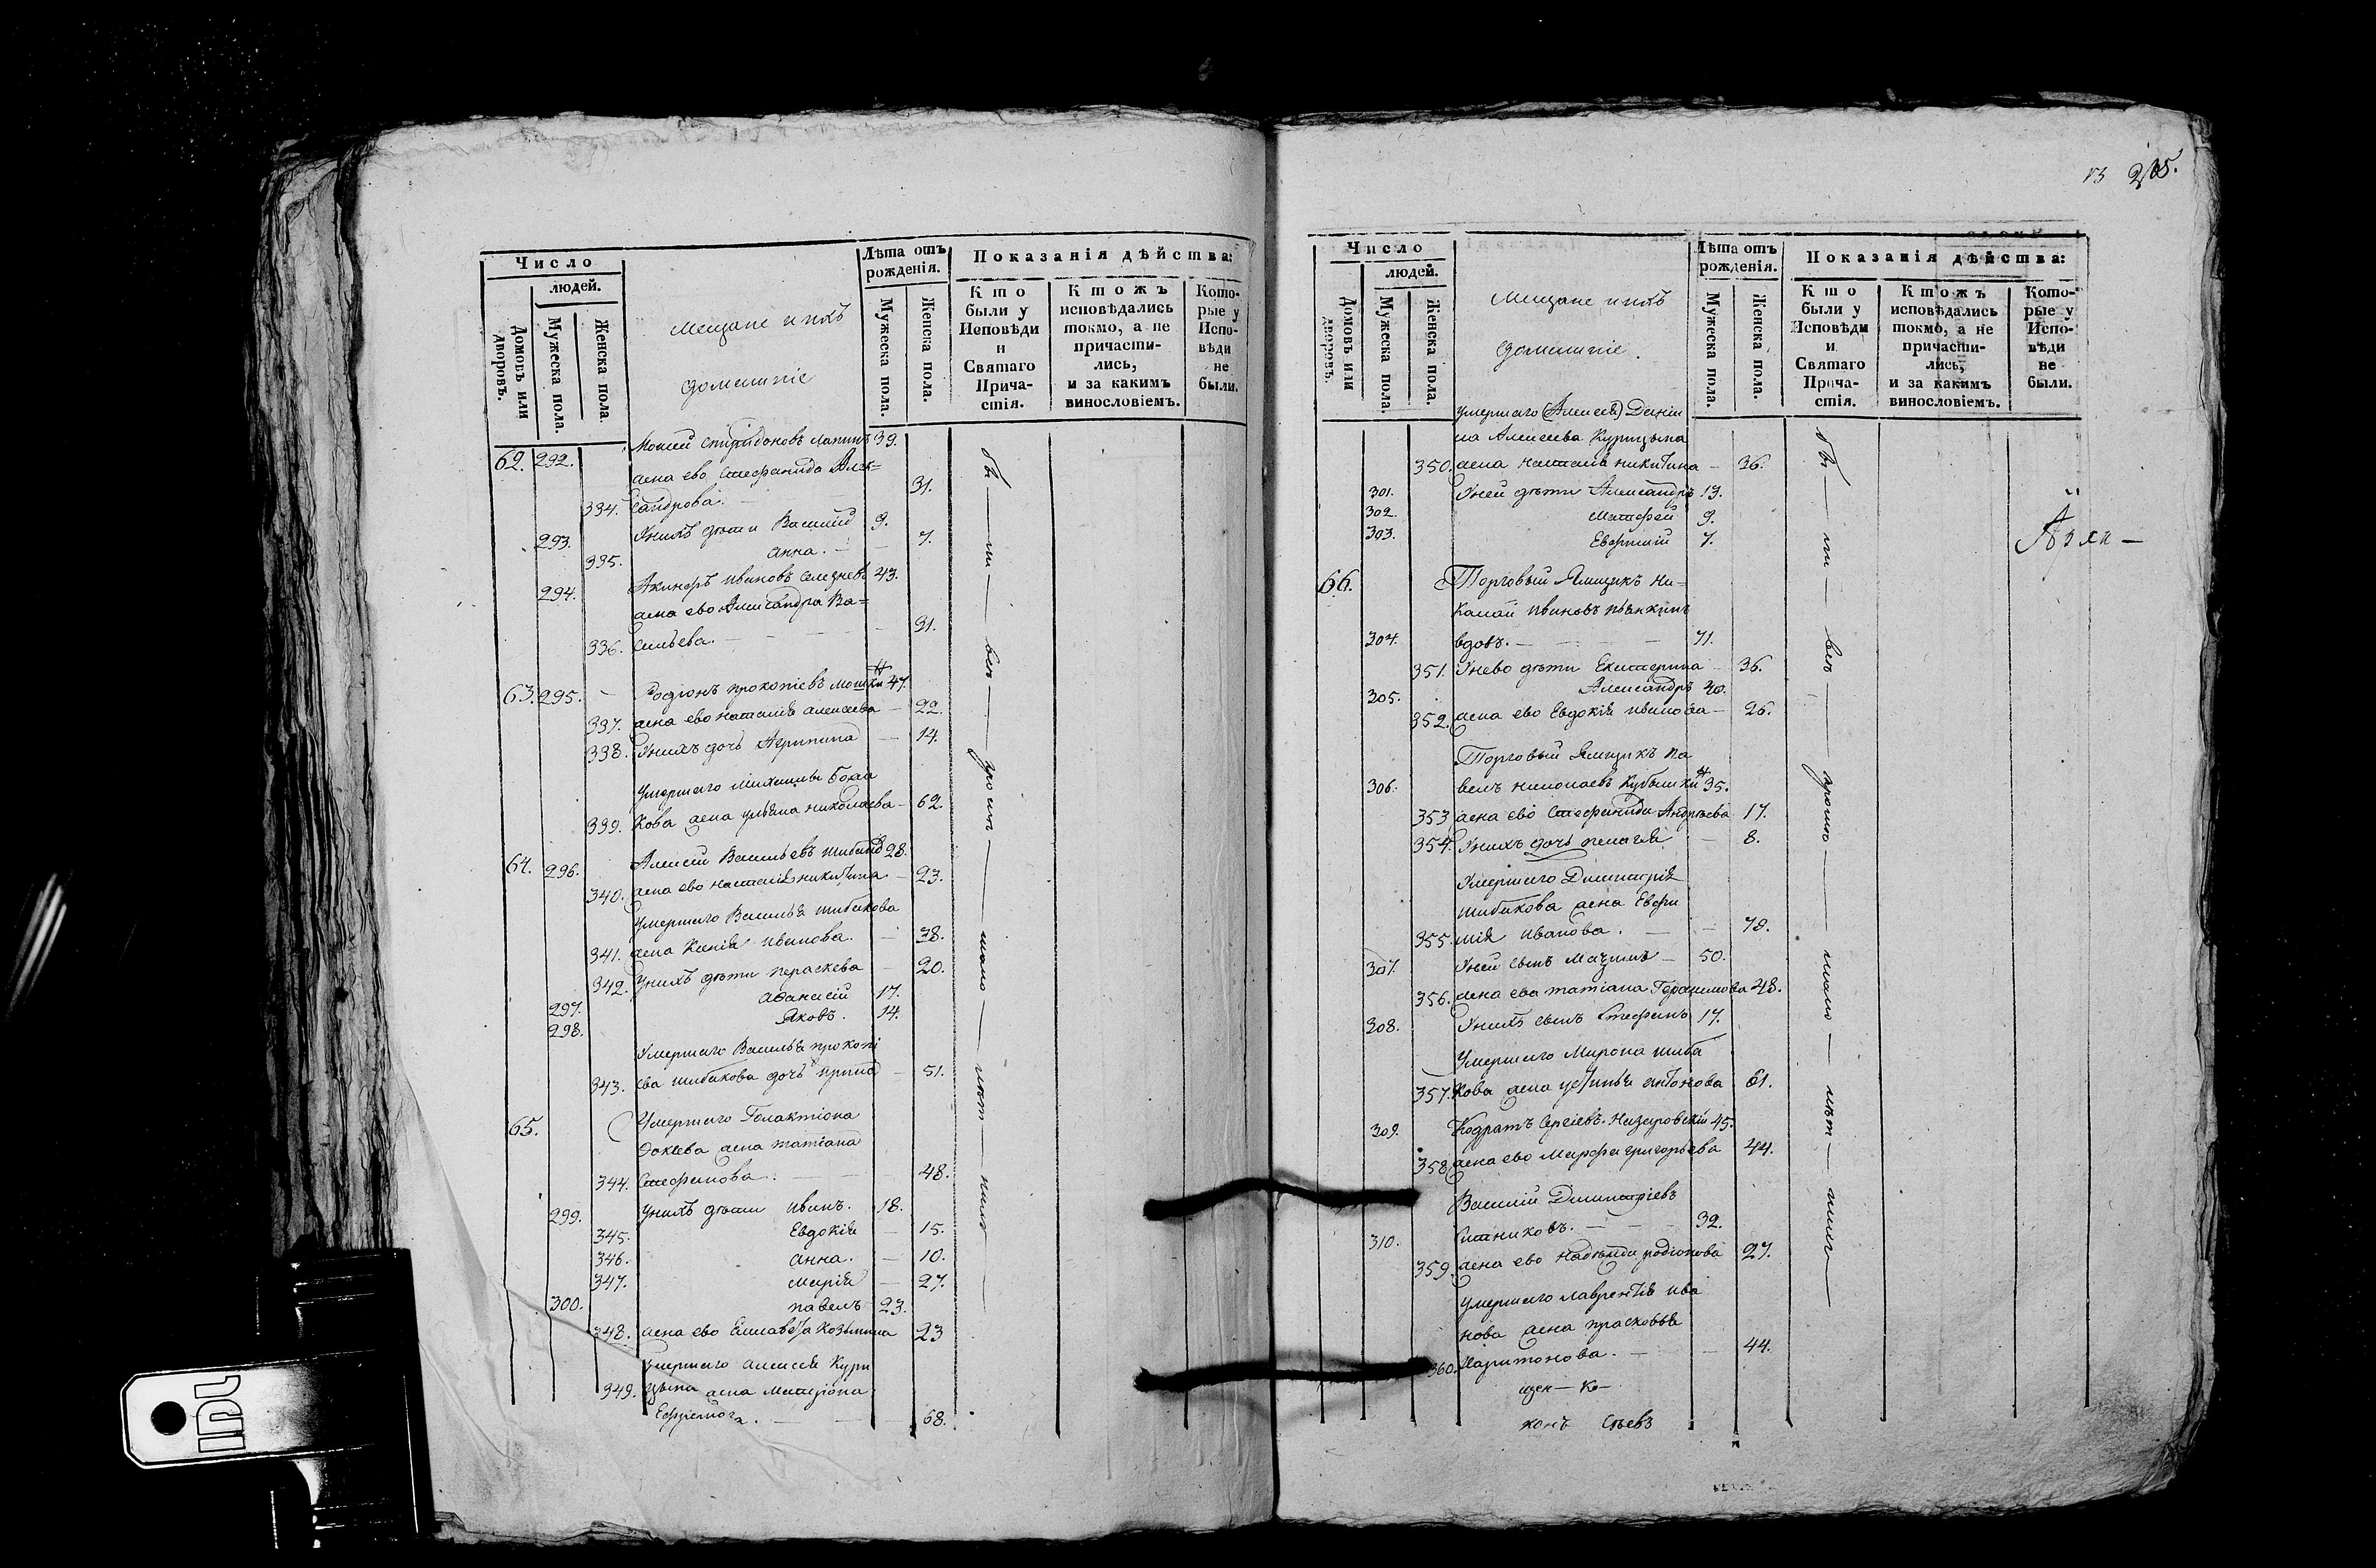 13 235.
Число
людей.
Домовъ или дворовъ.
Мужеска пола.
Женска пола.
Мещане и ихъ
домашніе
Лѣта отъ рожденія.
Мужеска пола.
Женска пола.
Показанія дѣйства:
Кто были у Исповѣди и Святаго Причастія.
Ктожъ исповѣдались токмо, а не причастились, и за какимъ винословіемъ.
Которые у Исповѣди не были.
62. 292. Моисей Спиридоновъ Лапинъ 39.
жена ево Стефанида Алек=
334. сандрова. 31.
293. У нихъ дѣти Василий 9.
335. Анна. 7.
294. Акинфъ Ивановъ Селезневъ 43.
жена ево Александра Ва=
336. сильева. 31.
63. 295. Родіонъ Прокопіевъ 47.
337. жена ево Наталія Алексеева 22.
338. У нихъ дочь Агрипина 14.
Умершаго Михаилы
339. кова жена Ульяна Николаева 62.
64. 296. Алексей Васильевъ 28.
340. жена ево Наталія Никитина 23.
Умершаго Василья Шибакова
341. жена Ксенія Иванова. 38.
342. У нихъ дѣти Пераскева 20.
297. Аѳанасій 17.
298. Яковъ. 14.
Умершаго Василья Прокопі
343. ева Шибакова дочь Ирина 51.
65. Умершаго Галактіона
жена Татіана
344. Стефанова. 48.
299. У нихъ дѣти Иванъ. 18.
345. Евдокія 15.
346. Анна. 10.
347. Марія 27.
300. Павелъ 23.
348. жена ево Елисавета Козьмина 23
Умершаго Алексея Кури
349. цына жена Матрона
Ефремова. 68.
бы — ли — всѣ —
Число
людей.
Домовъ или дворовъ.
Мужеска пола.
Женска пола.
Мещане и ихъ
домашніе.
Лѣта отъ рожденія.
Мужеска пола.
Женска пола.
Показанія дѣйства:
Кто были у Исповѣди и Святаго Причастія.
Ктожъ исповѣдались токмо, а не причастились, и за какимъ винословіемъ.
Которые у Исповѣди не были.
Умершаго (Алексея) Дании
ла Алексеева Курицына
350. жена Наталія Никитина 36.
301. У ней дѣти Александръ 19.
302. Матфей 9.
303. Евфимій 7.
66. Торговый Ямщикъ Ни=
колай Ивановъ
304. вдовъ. 71.
351. У нево дѣти Екатерина 36.
305. Александръ 40.
352. жена ево Евдокія Иванова 26.
Торговый Ямщикъ Па
306. велъ Николаевъ 35.
353 жена ево Стефанида Андреева 17.
354. У нихъ дочь Пелагія 8.
Умершаго Димитрія
Шибакова жена Евфи
355. мія Иванова. 78.
307. У ней сынъ 50.
356. жена ева Татіана Герасимова 48.
308. У нихъ сынъ Стефанъ 17.
Умершаго Мирона Шиба
357. кова жена Устинья Антонова 61.
309. Кодратъ Сергіевъ 45.
358. жена ево Марфа Григорьева 44.
Василій Димитріевъ
310. Ситниковъ. 32.
359. жена ево Надежда Родіонова 27.
Умершаго Лаврентія Ива
нова жена Прасковья
360. Харитонова. 44.
бы — ли — всѣ —